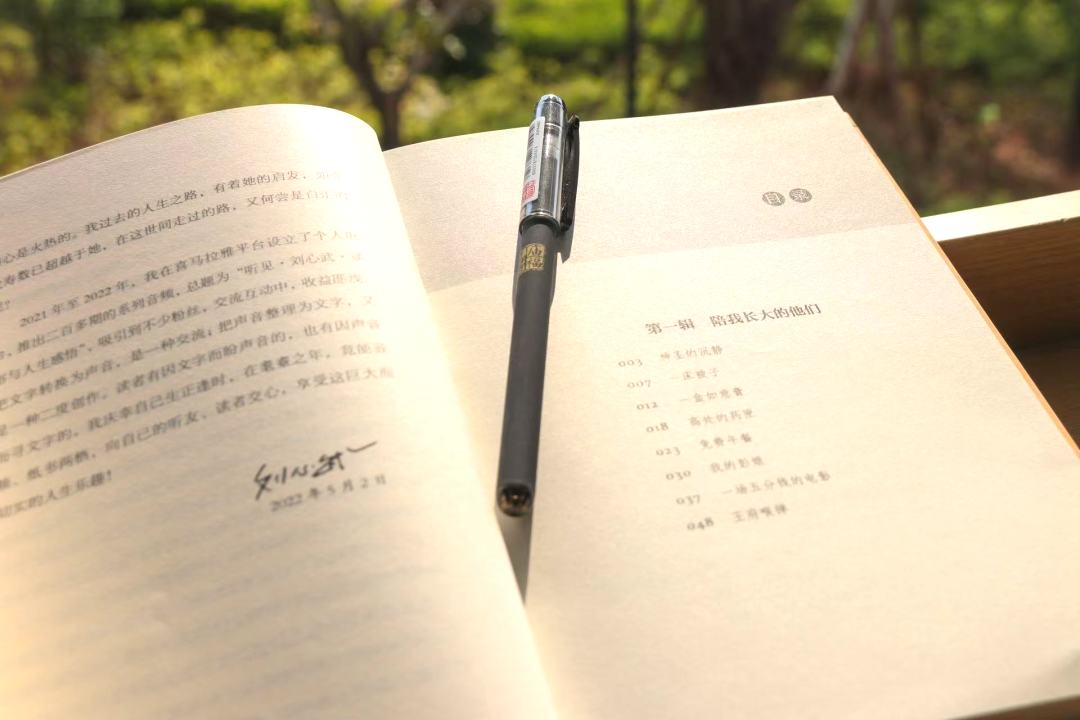 心是火热的。我过去的人生之路，有着她的启发，如今
寿数已超越于她，在这世间走过的路，又何尝是白
2021 年至 2022 年，我在喜马拉雅平台设立了个人
，推出二百多期的系列音频，总题为“听见·刘心武·
与人生感悟”，吸引到不少粉丝，交流互动中，收益匪浅
把文字转换为声音，是一种交流；把声音整理为文字，又
是一种二度创作。读者有因文字而盼声音的，也有因声音
而寻文字的，我庆幸自己生正逢时，在耄耋之年，竟能
、纸书两栖，向自己的听友、读者交心，享受这巨大而
切实的人生乐趣！
刘心武
2022 年 5 月 2 日
目录
第一辑 陪我长大的他们
003
007 一床被子
012 一盒如意膏
018 高处的药
023 免费午餐
030 我的影
037 一场五分钱的电影
048 王府喂弹